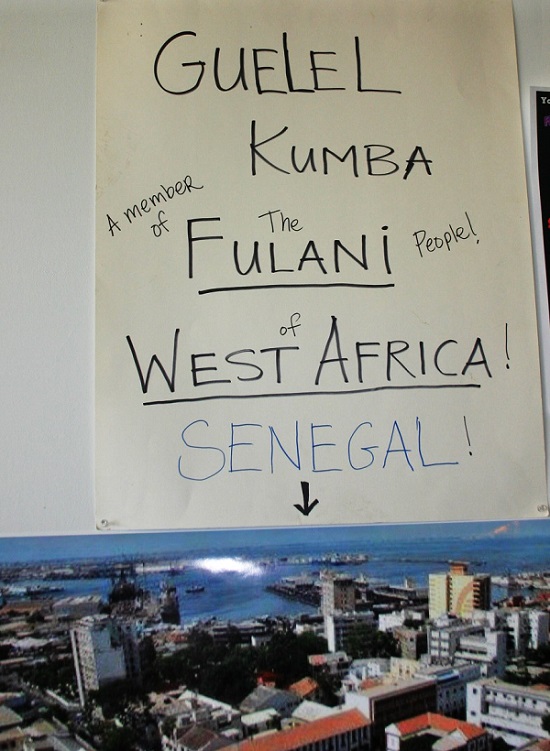 GUELEL
KUMBA
A member
of
The
FULANi People!
of
WEST AFRICA!
SENEGAL!